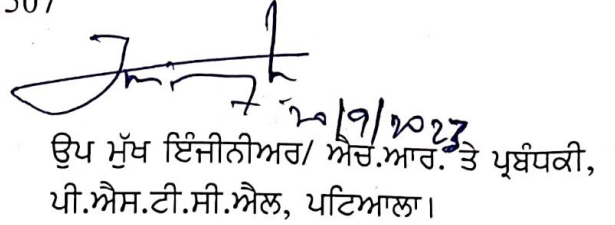 20/9/2023
ਉਪ ਮੁੱਖ ਇੰਜੀਨੀਅਰ/ ਐਚ.ਆਰ. ਤੇ ਪ੍ਰਬੰਧਕੀ,
ਪੀ.ਐਸ.ਟੀ.ਸੀ.ਐਲ, ਪਟਿਆਲਾ।